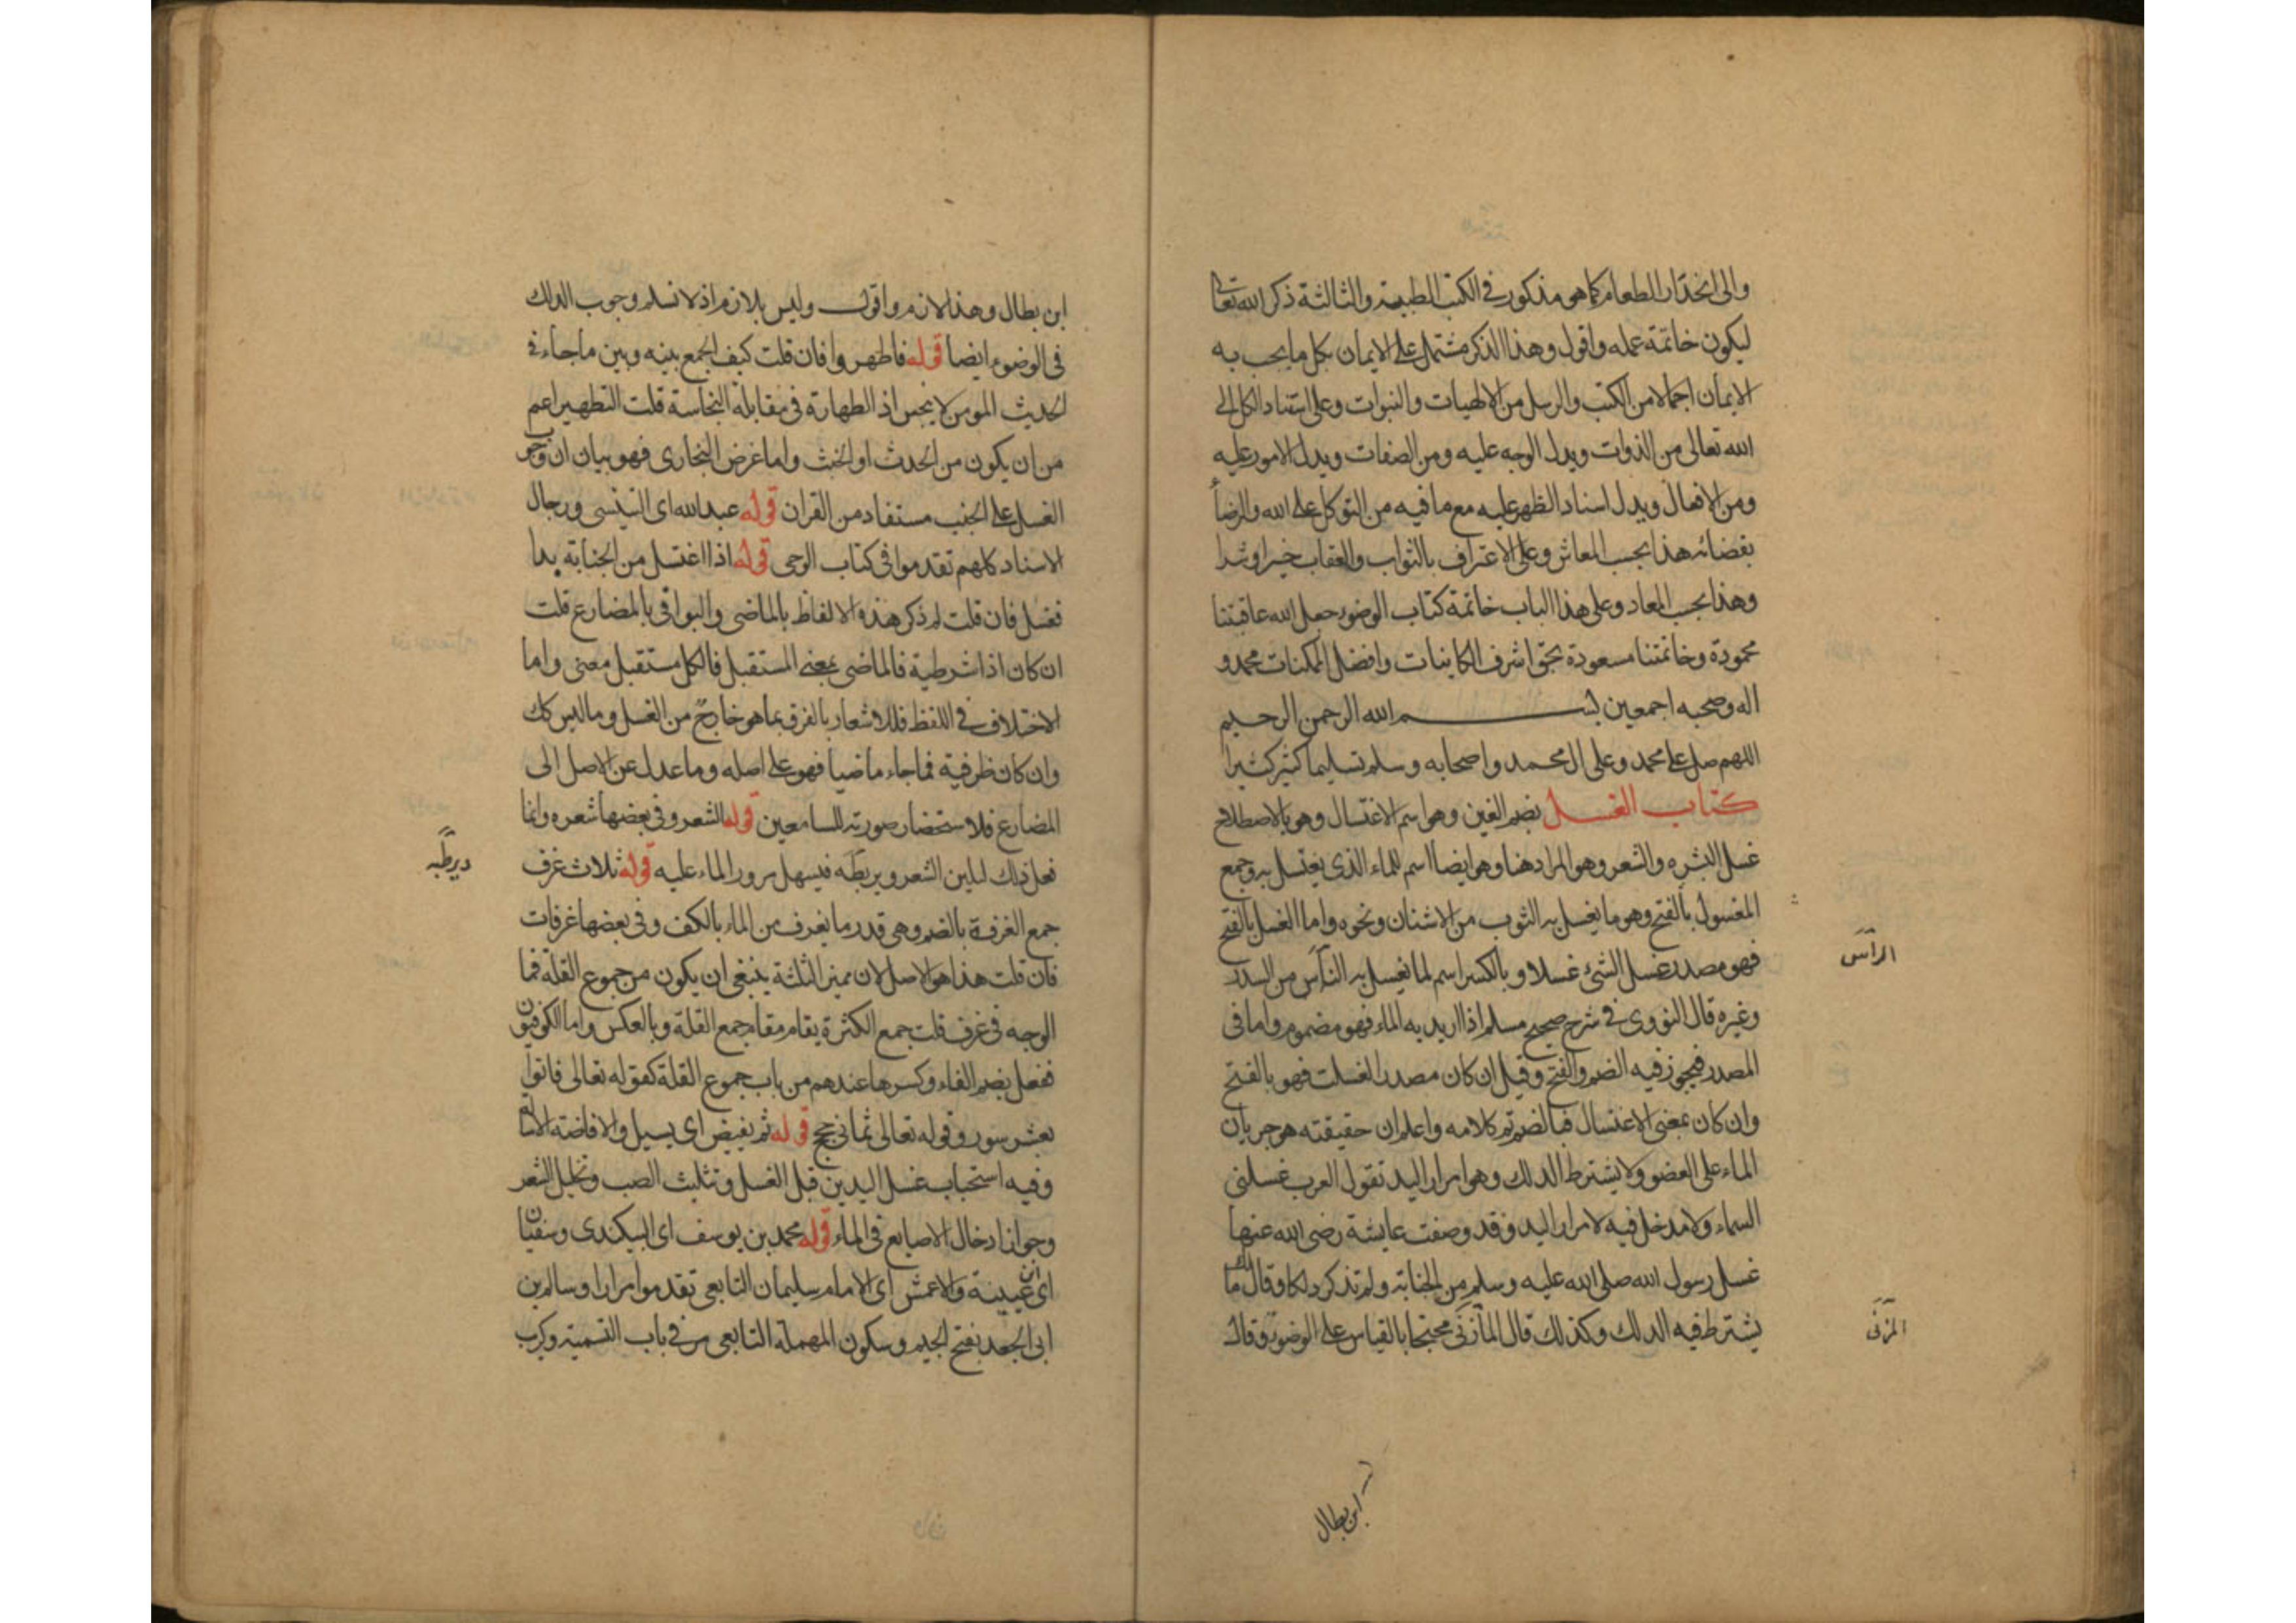 والى انحدار الطعام كما هو مذكور في الكتب الطبية والثالثة ذكر الله تعالى
ليكون خاتمة عمله واقول وهذا الذكر مشتمل على الايمان بكل ما يجب به
الايمان اجمالا من الكتب والرسل من الالهيات والنبوات وعلى استناد الكل الى
الله تعالى من الذوات ويدل الوجه عليه ومن الصفات ويدل الامور عليه
ومن الافعال ويدل اسناد الظهر عليه مع ما فيه من التوكل على الله والرضا
بقضائه هذا بحسب المعاش وعلى الاعتراف بالثواب والعقاب خيرا وشرا
وهذا بحسب المعاد وعلى هذا الباب خاتمة كتاب الوضوء جعل الله عاقبتنا
محمودة وخاتمتنا مسعودة بحق اشرف الكاينات وافضل الممكنات محمد و
اله وصحبه اجمعين بسم الله الرحمن الرحيم
اللهم صل على محمد وعلى ال محمد واصحابه وسلم تسليما كثير كثيرا
كتاب الغسل بضم الغين وهو اسم الاغتسال وهو بالاصطلاح
غسل البشره والشعر وهو المراد هنا وهو ايضا اسم للماء الذى يغتسل به وجمع
المغسول بالفتح وهو ما يغسل به الثوب من الاشنان ونحوه واما الغسل بالفتح
فهو مصدر غسل الشئ غسلا و بالكسر اسم لما يغسل به الناس من السدر
الرأس
وغيره قال النووى فى شرح صحيح مسلم اذا اريد به الماء فهو مضموم واما فى
المصدر فيجوز فيه الضم والفتح وقيل ان كان مصدر الغسلت فهو بالفتح
وان كان بمعنى الاغتسال فبالضم تم كلامه واعلم ان حقيقته هو جريان
الماء على العضو ولا يشترط الدلك وهو امرار اليد تقول العرب غسلنى
السماء ولا مدخل فيه لامرار اليد وقد وصفت عايشة رضى الله عنها
غسل رسول الله صلى الله عليه وسلم من الجنابة ولم تذكر دلكا وقال مالك
يشترط فيه الدلك وكذلك قال المازنى محتجا بالقياس على الوضوء وقال
المزنى
ابن بطال
ابن بطال وهذا لازم واقول وليس بلازم اذ لا نسلم وجوب الدلك
فى الوضوء ايضا قوله فاطهروا فان قلت كيف الجمع بينه وبين ما جاء فى
الحديث المومن لا ينجس اذ الطهارة فى مقابلة النجاسة قلت التطهير اعم
من ان يكون من الحدث او الخبث واما غرض البخارى فهو بيان ان وجوب
الغسل على الجنب مستفاد من القران قوله عبد الله اى التنيسى ورجال
الاسناد كلهم تقدموا فى كتاب الوحى قوله اذا اغتسل من الجنابة بدا
فغسل فان قلت لم ذكر هذه الالفاظ بالماضى والبواقى بالمضارع قلت
ان كان اذا شرطية فالماضى بمعنى المستقبل فالكل مستقبل معنى واما
الاختلاف فى اللفظ فللاشعار بالفرق بما هو خارج من الغسل وما ليس كك
وان كان ظرفية فما جاء ماضيا فهو على اصله وما عدل عن الاصل الى
المضارع فلاستحضار صورته للسامعين قوله الشعر وفى بعضها شعره وانما
فعل ذلك ليلين الشعر ويربطه فيسهل مرور الماء عليه قوله ثلاث غرف
جمع الغرفة بالضم وهى قدر ما يغرف من الماء بالكف وفى بعضها غرفات
فان قلت هذا هو الاصل لان مميز الثلثة ينبغى ان يكون من جموع القلة فما
الوجه فى غرف قلت جمع الكثرة يقام مقام جمع القلة وبالعكس واما الكوفيون
ففعل بضم الفاء وكسرها عندهم من باب جموع القلة كقوله تعالى فاتوا
بعشر سور وقوله تعالى ثمانى حجج قوله ثم يفيض اى يسيل والافاضة الاسالة
وفيه استحباب غسل اليدين قبل الغسل وتثليث الصب وتخليل الشعر
وجواز ادخال الاصابع فى الماء قوله محمد بن يوسف اى البيكندى وسفيان
اى ابن عيينة والاعمش اى الامام سليمان التابعى تقدموا مرارا وسالم بن
ابى الجعد بفتح الجيم وسكون المهملة التابعى مر فى باب التسمية وكريب